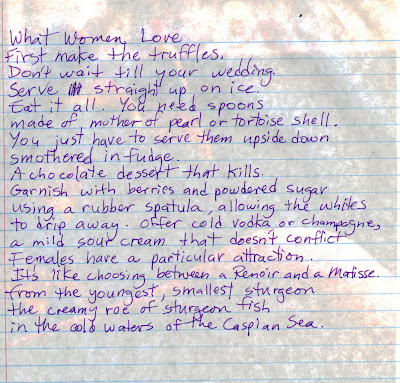 What Women Love
First make the truffles.
Don't wait till your wedding.
Serve straight up on ice.
Eat it all. You need spoons
made of mother of pearl or tortoise shell.
You just have to serve them upside down
smothered in fudge.
A chocolate dessert that kills.
Garnish with berries and powdered sugar
using a rubber spatula, allowing the whites
to drip away. Offer cold vodka or champagne,
a mild sour cream that doesn't conflict
Females have a particular attraction.
It's like choosing between a Renoir and a Matisse.
from the youngest, smallest sturgeon
the creamy roe of sturgeon fish
in the cold waters of the Caspian Sea.